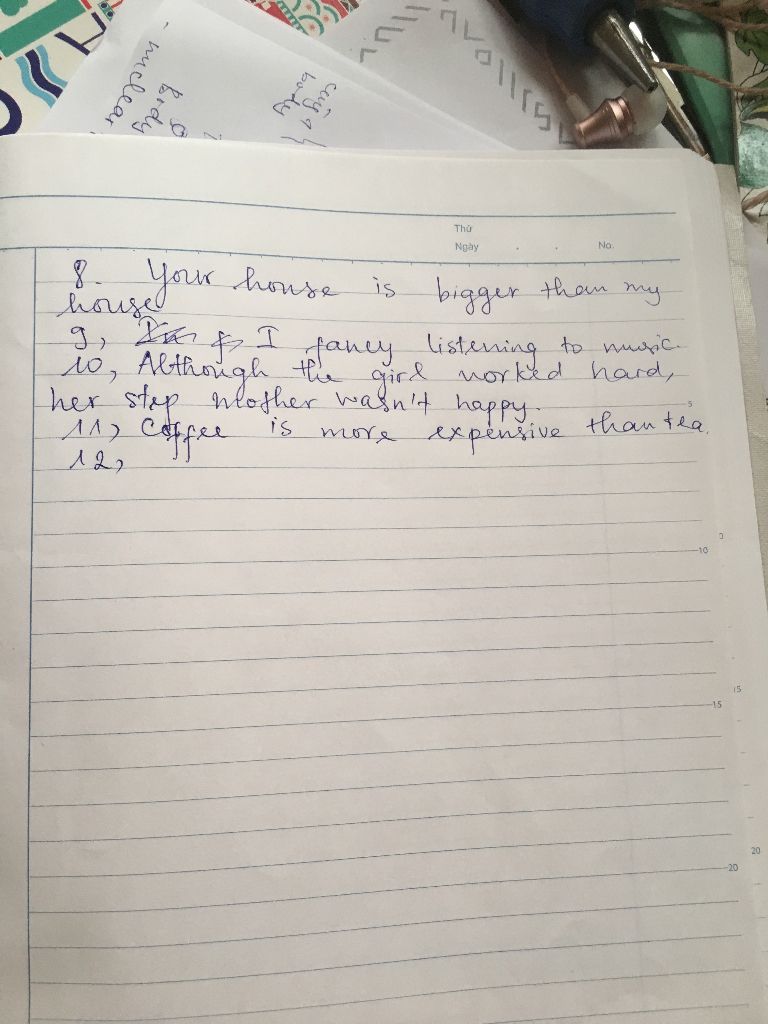 - nuclear
body
body
Thứ
Ngày . . No.
8. Your house is bigger than my
house
9, I fancy listening to music.
10, Although the girl worked hard,
her step mother wasn't happy.
5
11, Coffee is more expensive than tea.
12,
10
15
15
20
20